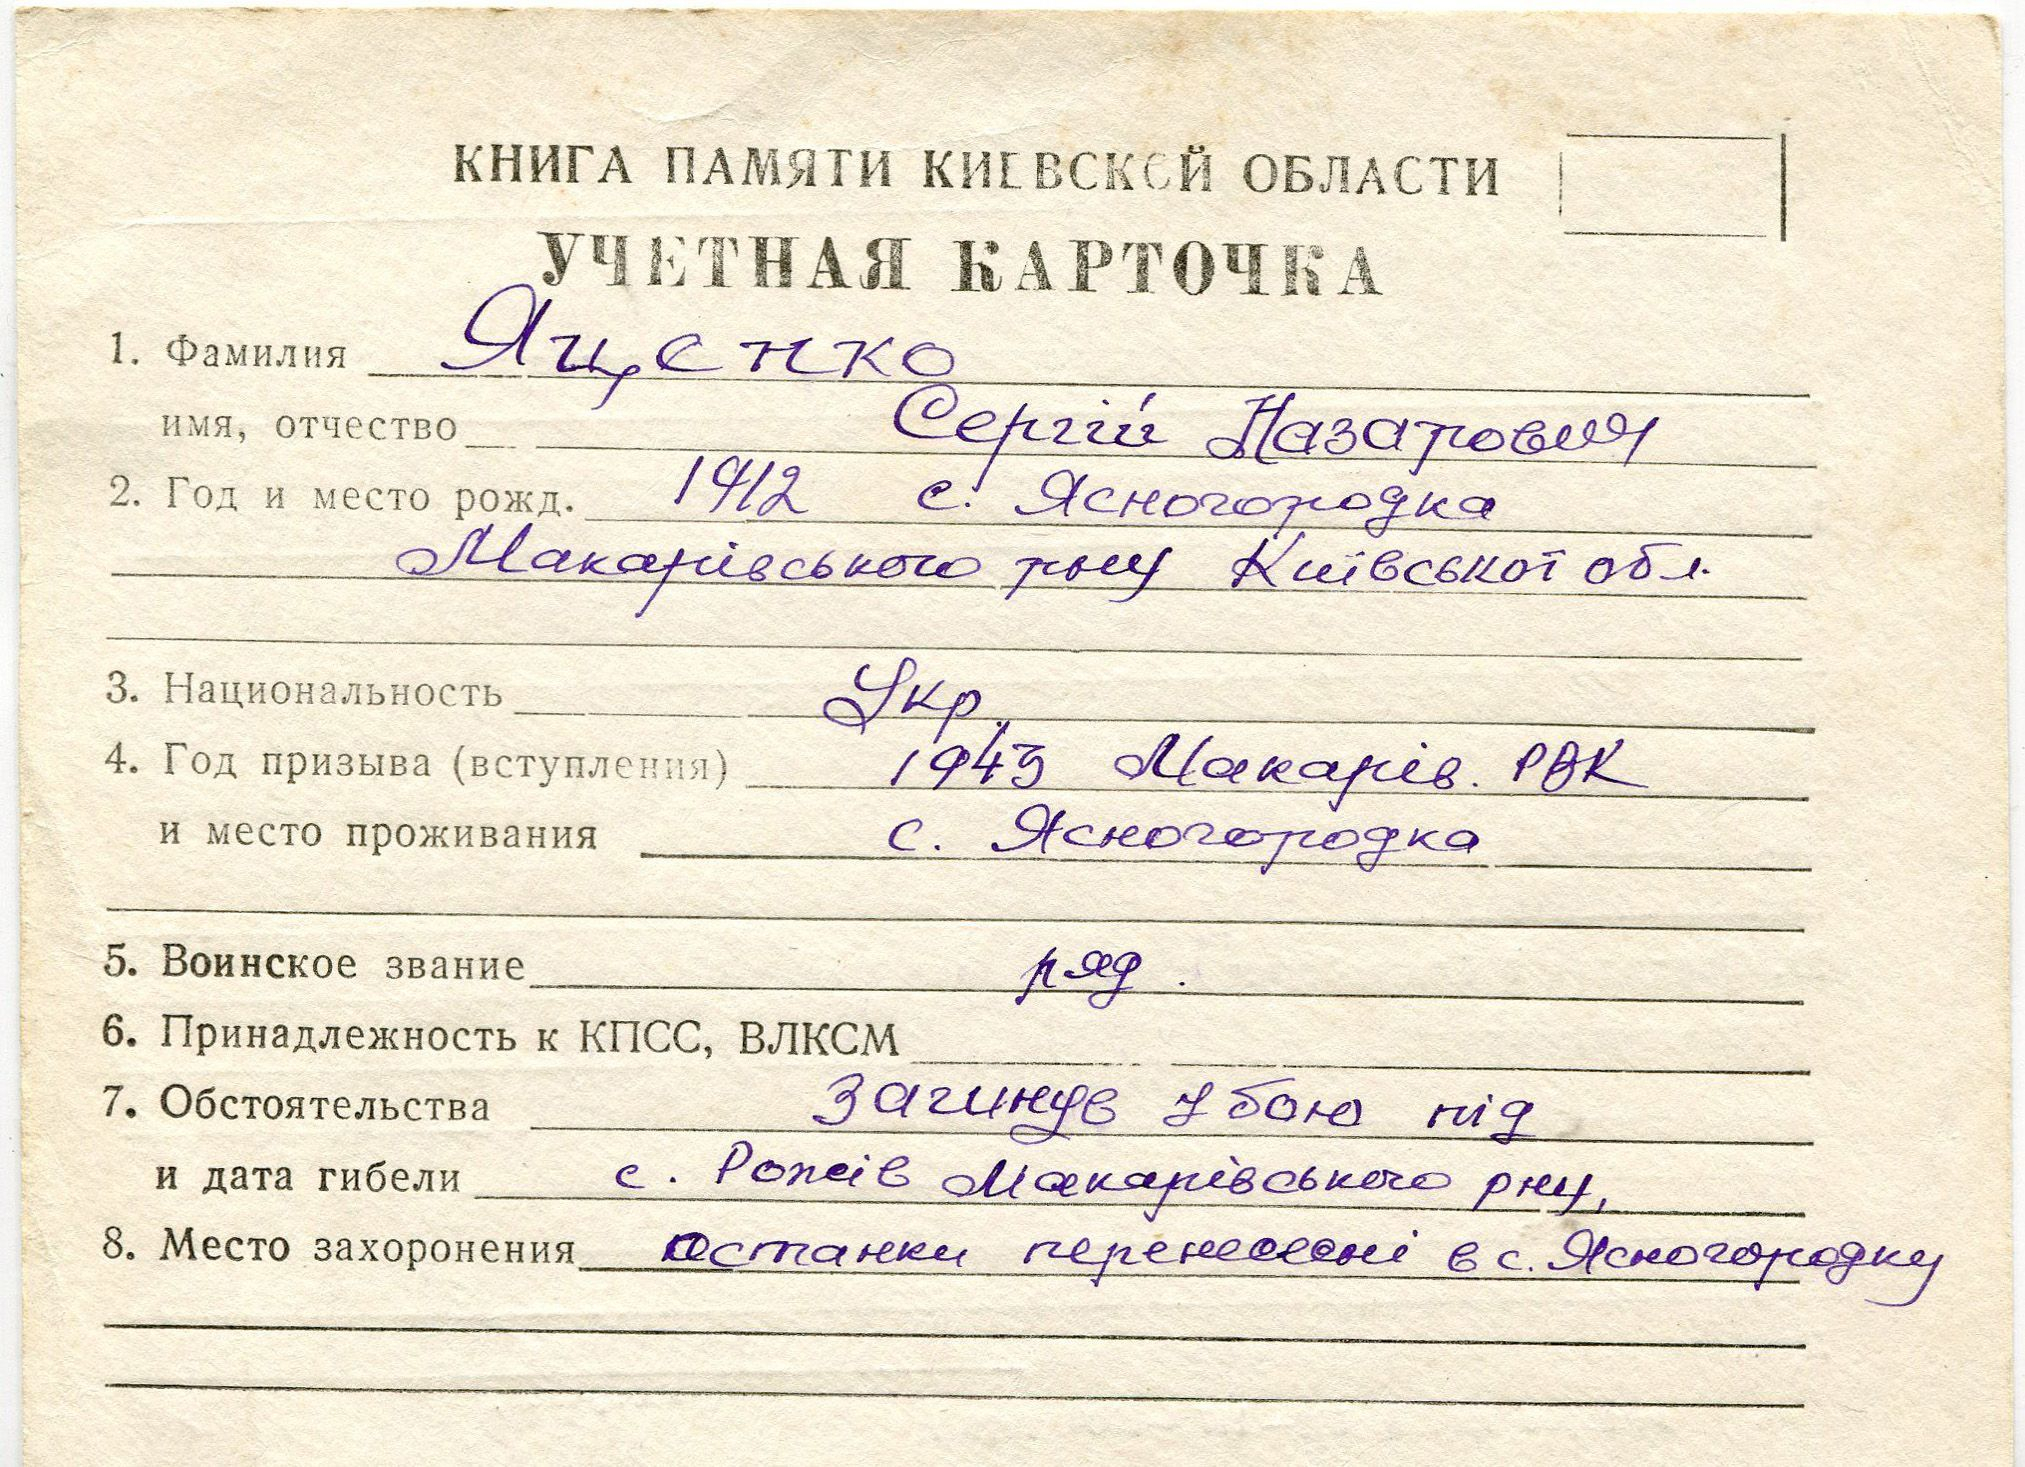 КНИГА ПАМЯТИ КИЕВСКОЙ ОБЛАСТИ
УЧЕТНАЯ КАРТОЧКА
1. Фамилия Яценко
имя, отчество Сергій Назарович
2. Год и место рожд. 1912 с. Ясногородка
Макарівського рну Київської обл.
3. Национальность Укр.
4. Год призыва (вступления) 1943 Макарів. РВК
и место проживания с. Ясногородка
5. Воинское звание ряд.
6. Принадлежность к КПСС, ВЛКСМ
7. Обстоятельства Загинув у бою під
и дата гибели с. Рожів Макарівського рну,
8. Место захоронения останки перенесені в с. Ясногородку